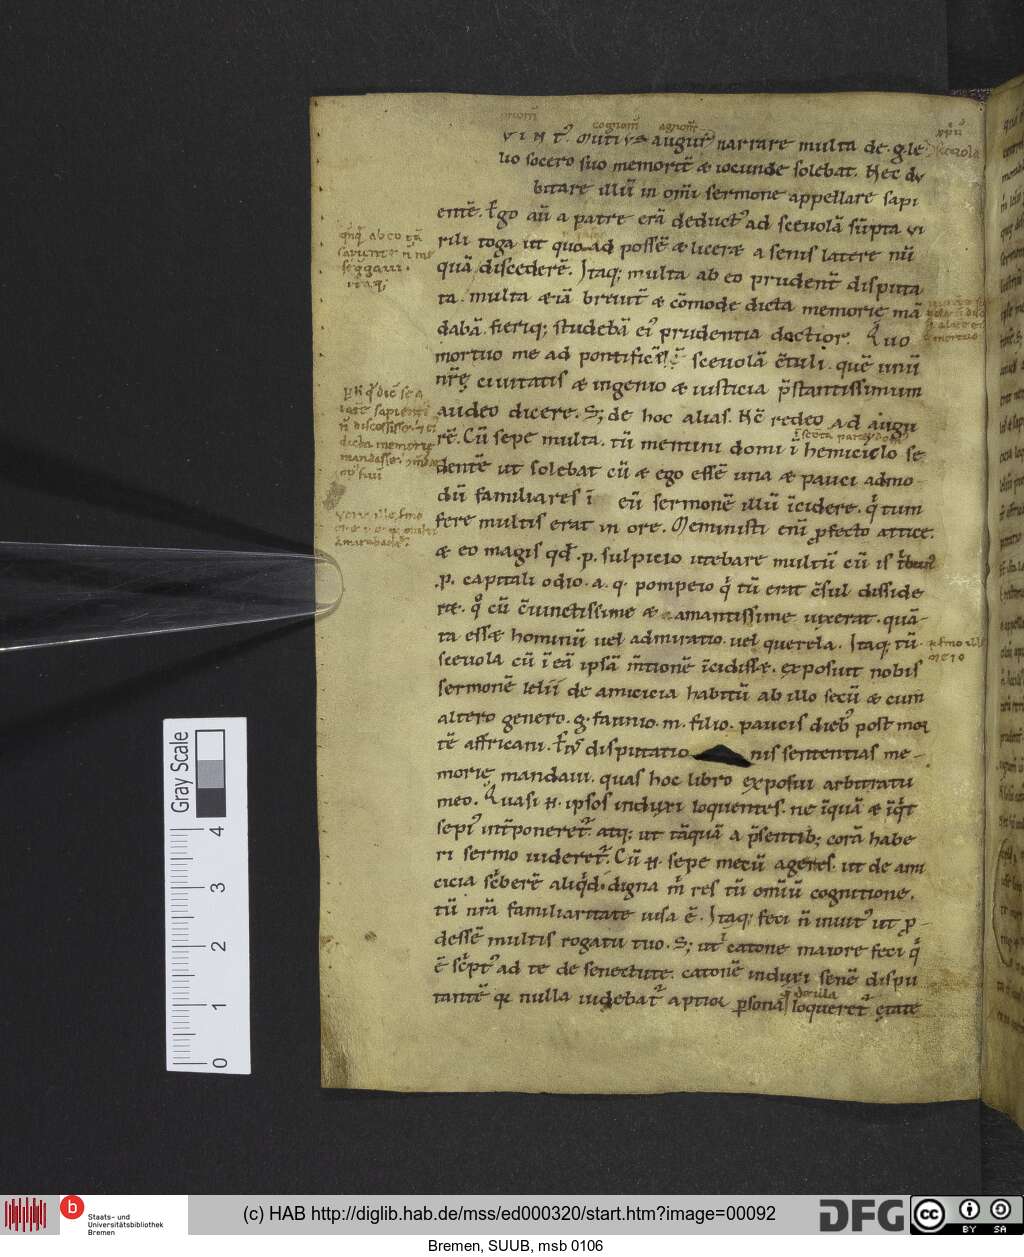 VINT' mutius augur narrare multa de .g. le
lio socero suo memorit̃ & iocunde solebat. Nec du
bitare illũ in om̃i sermone appellare sapi
entẽ. Ego aũ a patre erã deduct' ad sceuolã sũpta vi
rili toga ut quo ad possẽ & licer& a senis latere nũ
quã discederẽ. Itaq; multa ab eo prudent̃ disputa
ta. multa &iã breuit̃ & cõmode dicta memorię mã
dabã. fieriq; studebã ei' prudentia doctior. Quo
mortuo me ad pontificẽ sceuolã c̃tuli. quẽ unũ
nr̃ę ciuitatis & ingenio & iusticia p̃stantissimum
audeo dicere. S; de hoc alias. Nc̃ redeo ad augu
rẽ. Cũ sepe multa. tũ memini domi ĩ hemiciclo se
dentẽ ut solebat cũ & ego essẽ una & pauci admo
dũ familiares ĩ eũ sermonẽ illũ ĩcidere. q̃ tum
fere multis erat in ore. Meministi enĩ p̱fecto attice.
& eo magis qđ .p. sulpicio utebare multũ cũ is
.p. capitali odio .a. q. pompeio q̃ tũ erat c̃sul disside
r&. q̊ cũ c̃iunctissime & amantissime uixerat. quã
ta ess& hominũ uel admiratio. uel querela. Itaq; tũ
sceuola cũ ĩ eã ipsã m̃tionẽ ĩcidiss&. exposuit nobis
sermonẽ lelii de amicicia habitũ ab illo secũ & cum
altero genero .g. fannio .m. filio. paucis dieb' post mor
tẽ affricani. Ei' disputatio nis sententias me
morię mandaui. quas hoc libro exposui arbitratu
meo. Quasi .n. ipsos induxi loquentes. ne ĩquã & ĩq̃t
sepi' int̃poneret̃. atq; ut tãquã a p̃sentib; corã habe
ri sermo uideret̃. Cũ .n. sepe mecũ ageres. ut de ami
cicia sc̃berẽ aliq̃d. digna m̃ res tũ om̃iũ cognitione.
tũ nr̃a familiaritate uisa ẽ. Itaq; feci ñ inuit' ut p̱
dessẽ multis rogatu tuo. S; ut catone maiore feci q̃
ẽ sc̃pt' ad te de senectute. catonẽ induxi senẽ dispu
tantẽ q̃ nulla uidebat̃ aptior p̱sona loqueret̃ ętate
Gray Scale
4
3
2
1
0
b
Staats- und
Universitätsbibliothek
Bremen
(c) HAB http://diglib.hab.de/mss/ed000320/start.htm?image=00092
DFG
cc BY SA
Bremen, SUUB, msb 0106